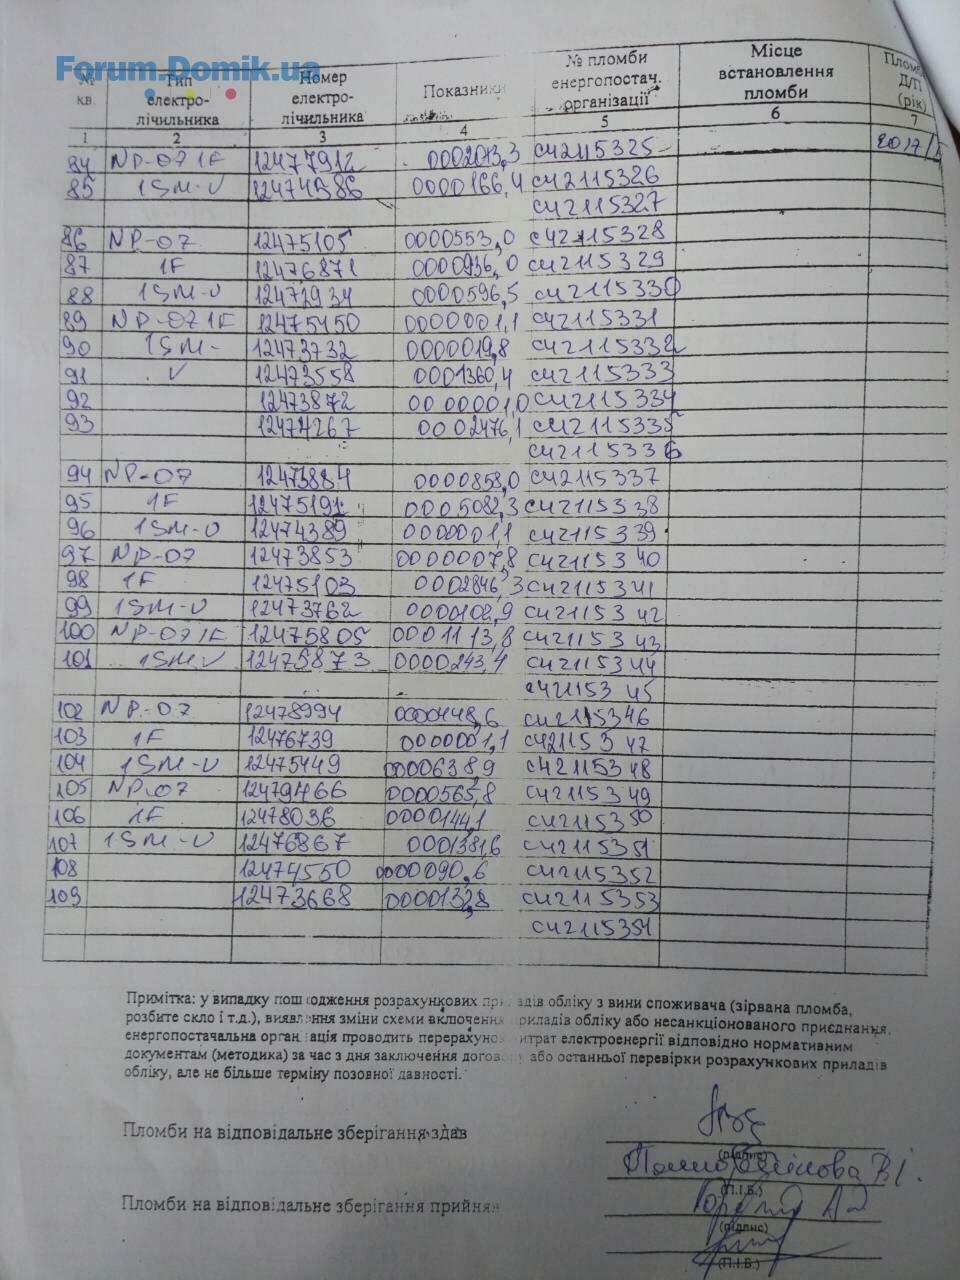 Forum.Domik.ua
№ кв. Тип електро-лічильника Номер електро-лічильника Показники № пломби енергопостач. організації Місце встановлення пломби Д/П (рік)
1 2 3 4 5 6 7
84 NP-07 1F 12477912 0002013,3 СЧ2115325 2017/
85 1SM-U 12474586 0000166,4 СЧ2115326
СЧ2115327
86 NP-07 12475105 0000553,0 СЧ2115328
87 1F 12476871 0000936,0 СЧ2115329
88 1SM-U 12472934 0000596,5 СЧ2115330
89 NP-07 1F 12475150 0000001,1 СЧ2115331
90 1SM- 12473732 0000019,8 СЧ2115332
91 U 12473558 0001360,4 СЧ2115333
92 12473872 0000001,0 СЧ2115334
93 12474267 0002476,1 СЧ2115335
СЧ2115336
94 NP-07 12473884 0000858,0 СЧ2115337
95 1F 12475191 0005082,3 СЧ2115338
96 1SM-U 12474389 0000001,1 СЧ2115339
97 NP-07 12473853 00000007,8 СЧ2115340
98 1F 12475103 0002846,3 СЧ2115341
99 1SM-U 12473762 0000102,9 СЧ2115342
100 NP-07 1F 12475805 0001113,8 СЧ2115343
101 1SM-U 12475873 0000243,4 СЧ2115344
СЧ2115345
102 NP-07 12478994 0000448,6 СЧ2115346
103 1F 12476739 0000001,1 СЧ2115347
104 1SM-U 12475449 0000638,9 СЧ2115348
105 NP-07 12479466 0000565,8 СЧ2115349
106 1F 12478036 0000144,1 СЧ2115350
107 1SM-U 12476867 0001381,6 СЧ2115351
108 12474550 0000090,6 СЧ2115352
109 12473668 0000132,8 СЧ2115353
СЧ2115354
Примітка: у випадку пошкодження розрахункових приладів обліку з вини споживача (зірвана пломба,
розбите скло і т.д.), виявлення зміни схеми включення приладів обліку або несанкціонованого приєднання,
енергопостачальна організація проводить перерахунок витрат електроенергії відповідно нормативним
документам (методика) за час з дня заключення договору або останньої перевірки розрахункових приладів
обліку, але не більше терміну позовної давності.
Пломби на відповідальне зберігання здав
(підпис)
(П.І.Б.)
Пломби на відповідальне зберігання прийняв
(підпис)
(П.І.Б.)